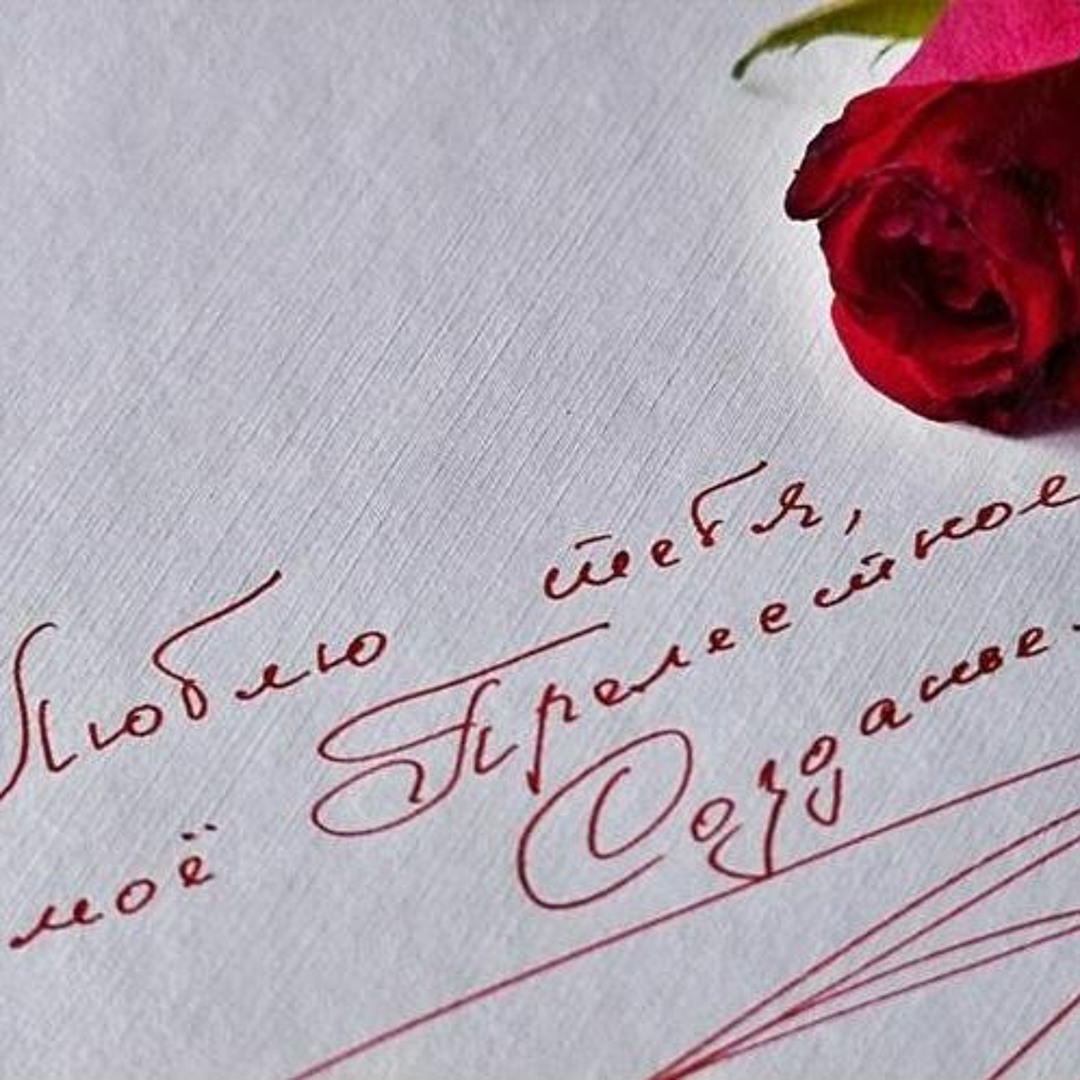 Люблю тебя,
моё Прелестное
Созданье.